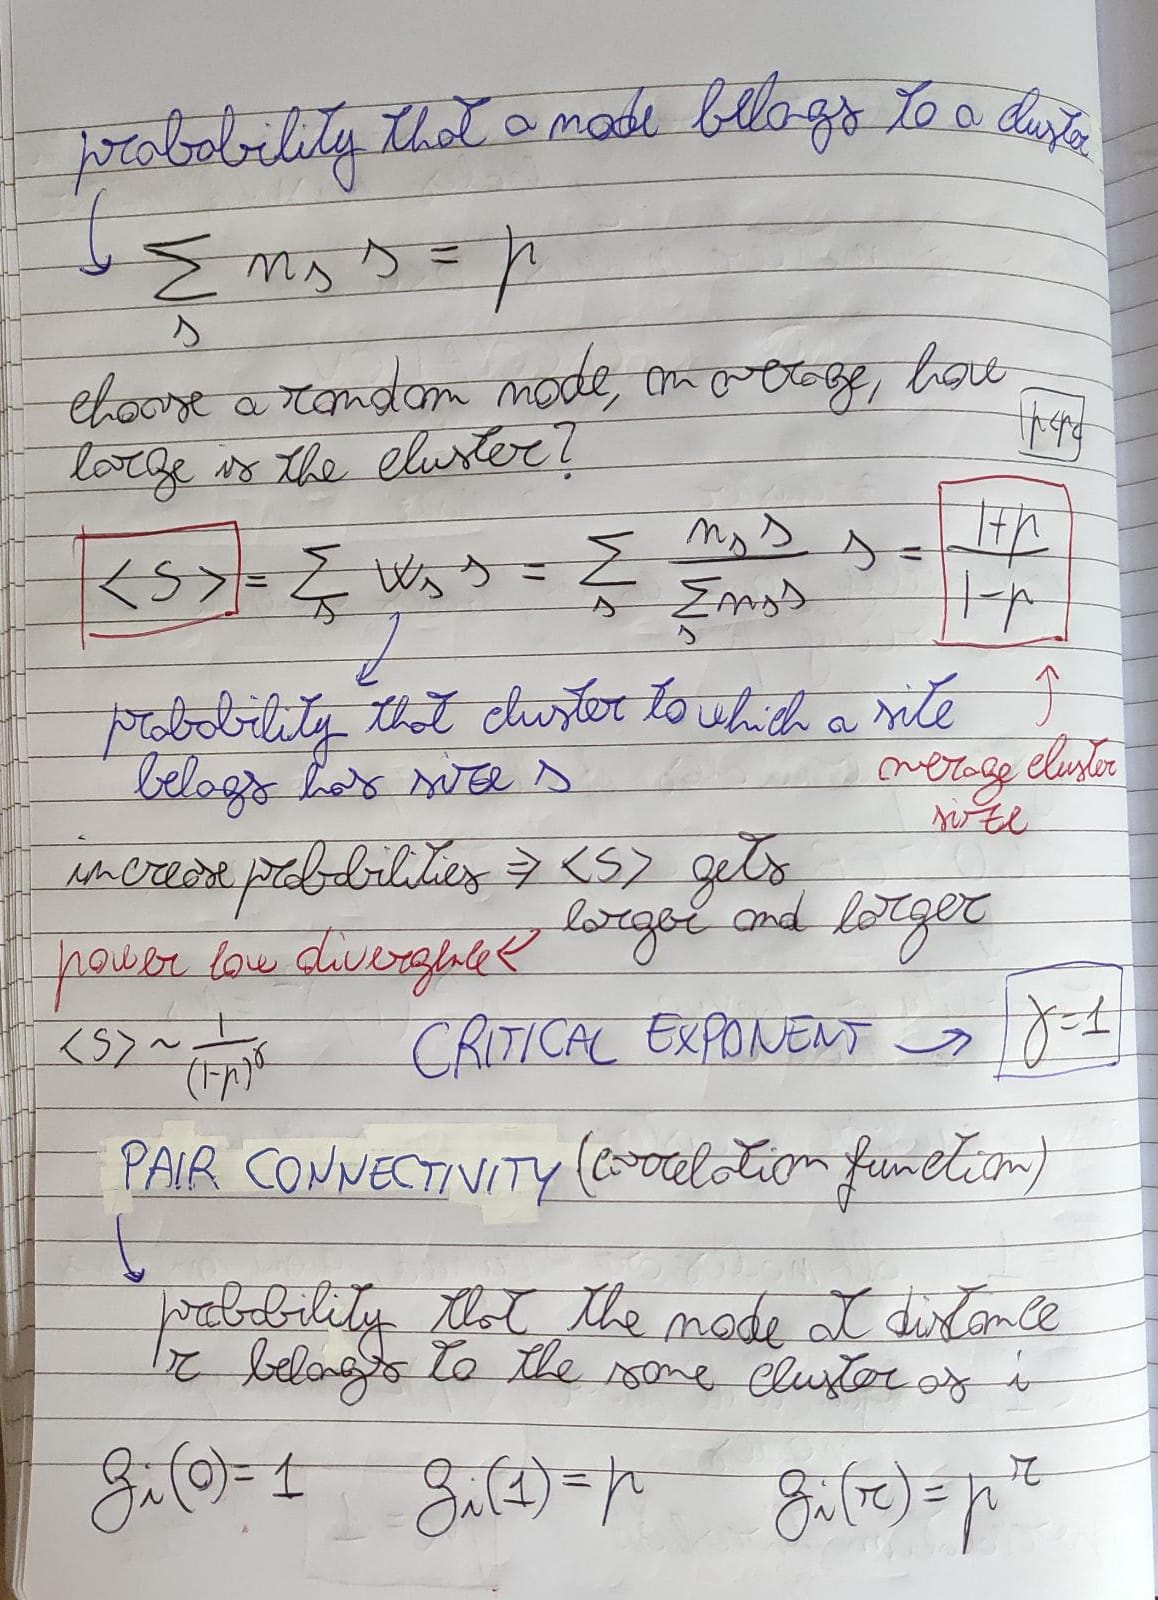 probability that a node belongs to a cluster
∑_s n_s s = p
choose a random node, on average, how
large is the cluster?
p<p_c
<S> = ∑_s w_s s = ∑_s (n_s s)/(∑_s n_s s) s = (1+p)/(1-p)
probability that cluster to which a site
belogs has size s
average cluster
size
increase probabilities ⇒ <S> gets
larger and larger
power low divergence
<S> ~ 1/(1-p)^γ CRITICAL EXPONENT → γ=1
PAIR CONNECTIVITY (correlation function)
probability that the node at distance
r belongs to the same cluster as i
g_i(0)=1 g_i(1)=p g_i(r)=p^r